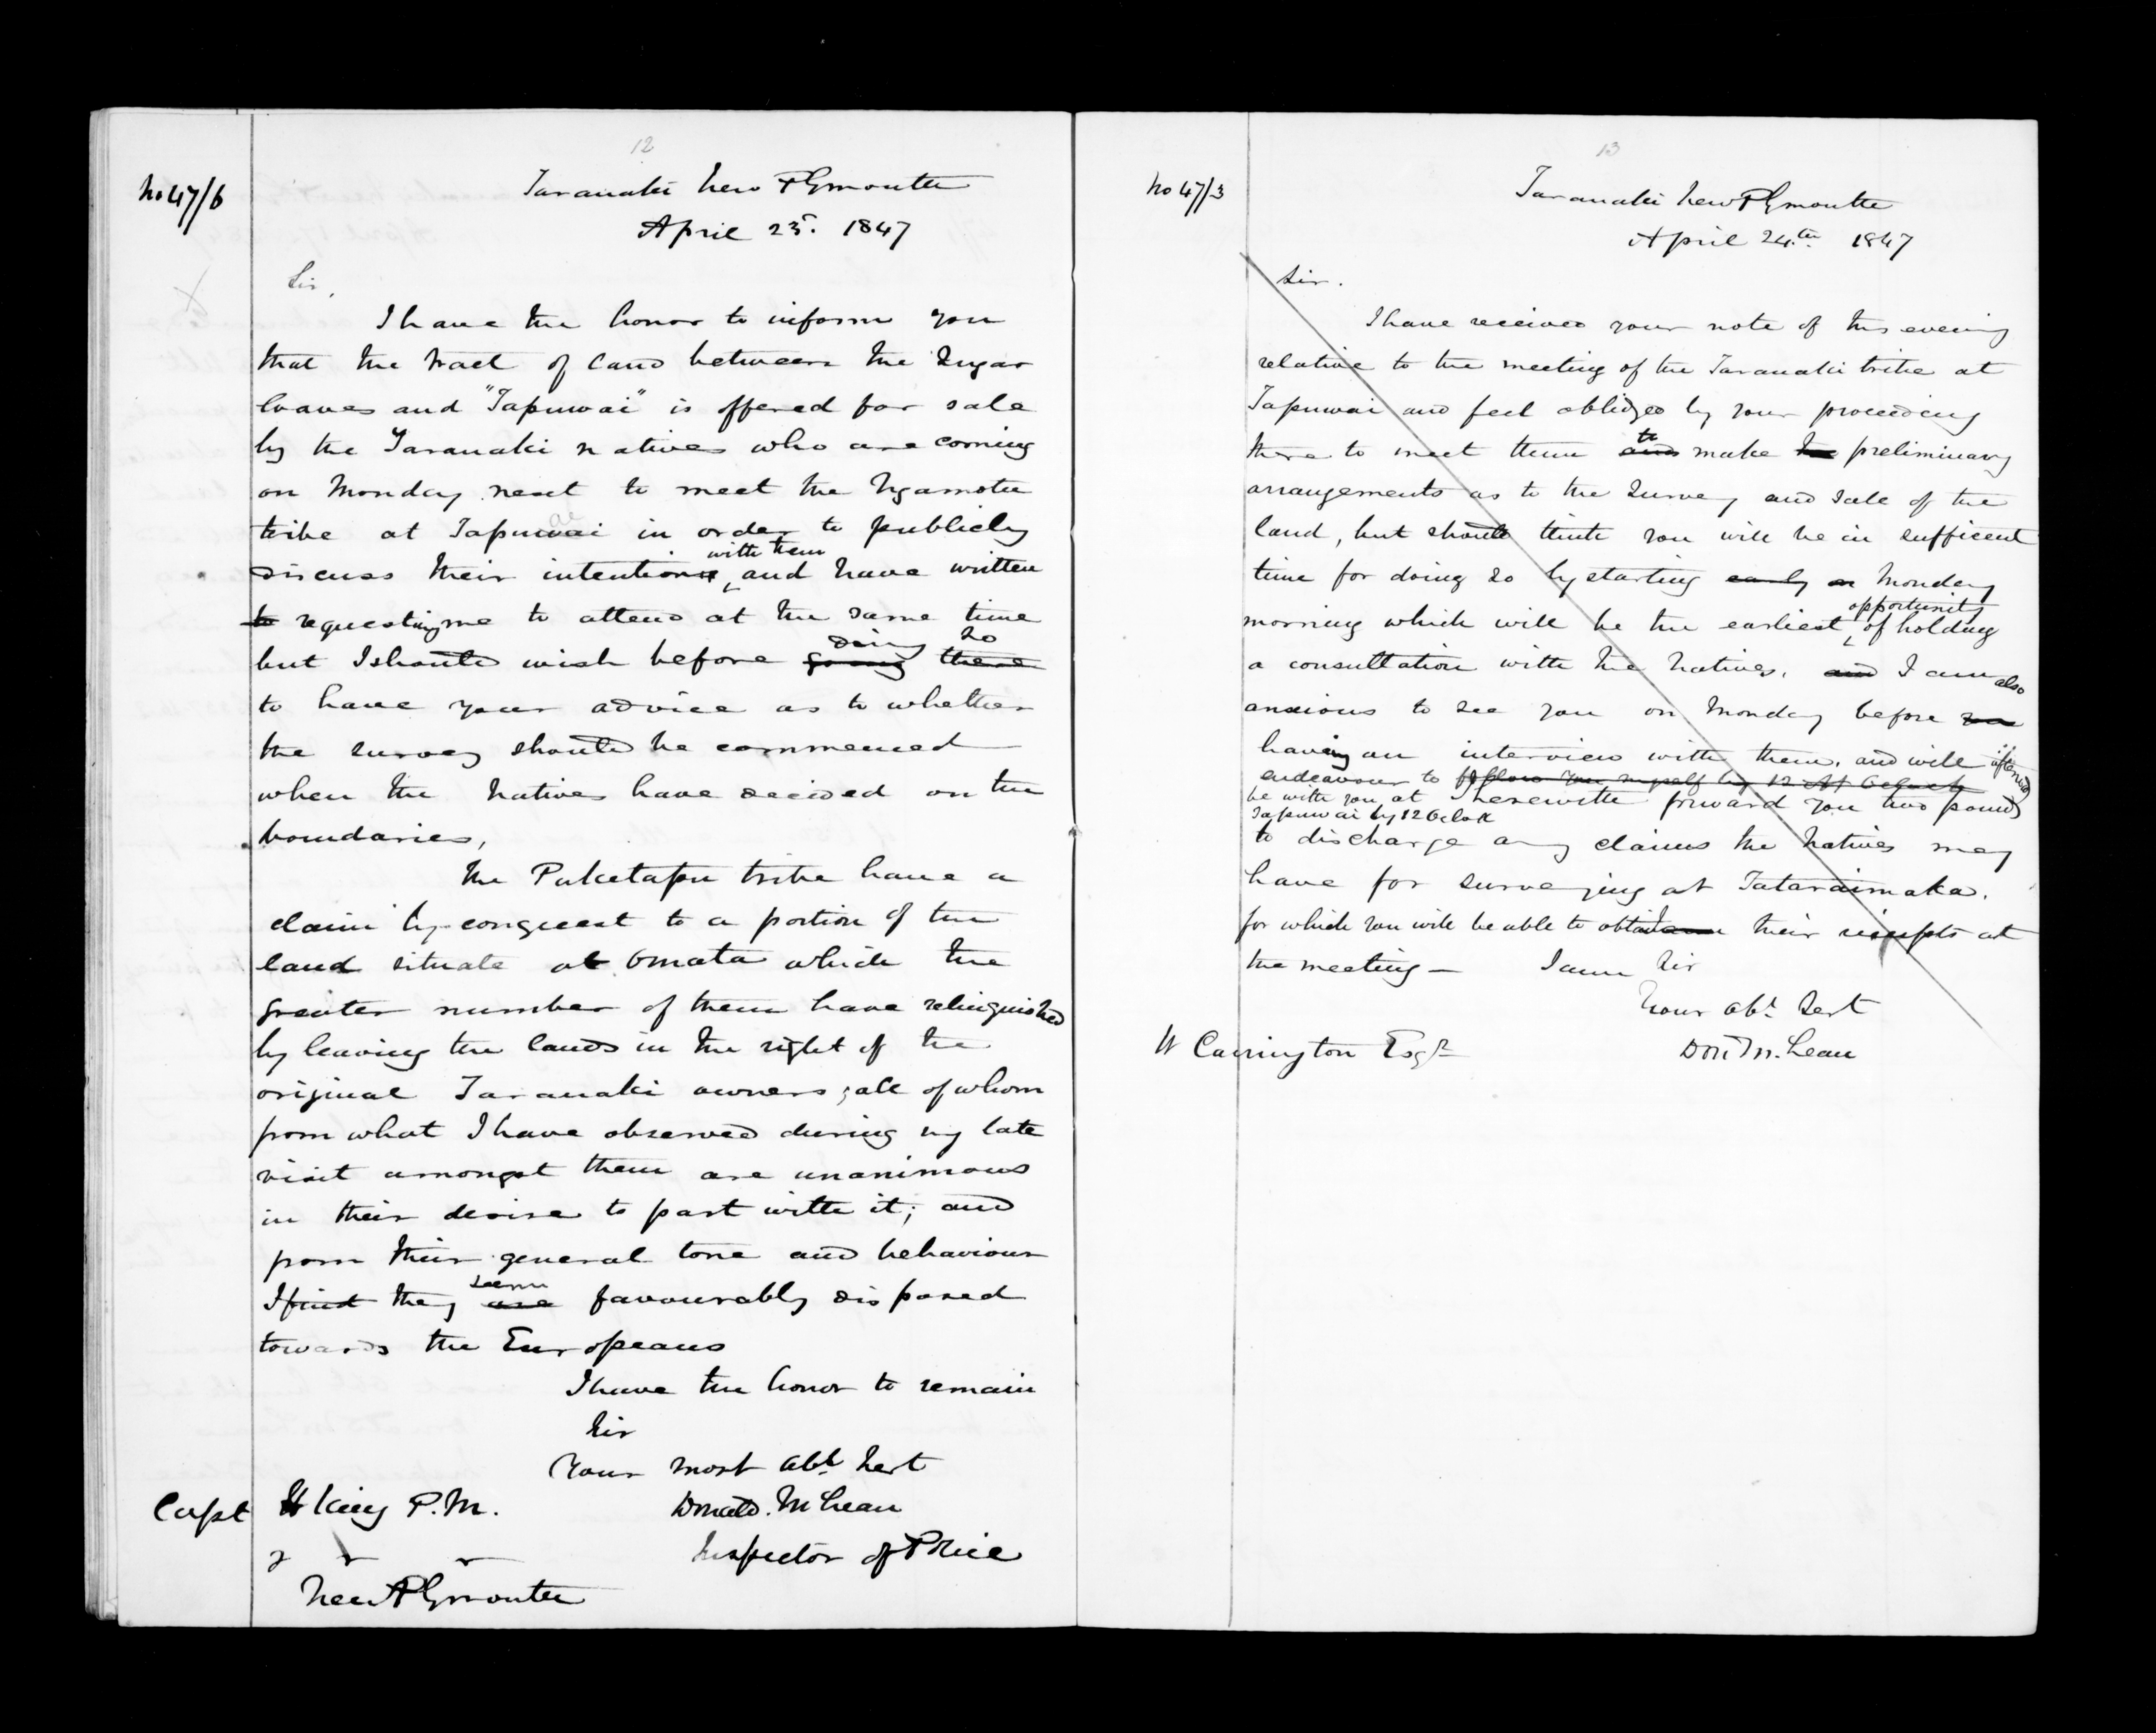 12
No 47/6
Taranaki New Plymouth
April 23r. 1847
Sir,
I have the honor to inform you
that the tract of land between the Sugar
loaves and "Tapuwai" is offered for sale
by the Taranaki natives who are coming
on Monday next to meet the Ngamotu
tribe at Tapuwai in order to publicly
with them
discuss their intentions, and have written
to requesting me to attend at the same time
doing so
but I should wish before going there
to have your advice as to whether
the survey should be commenced
when the Natives have decided on the
boundaries,
The Puketapu tribe have a
claim by conquest to a portion of the
land situate at Omata which the
greater number of them have relinquished
by leaving the lands in the right of the
original Taranaki owners; all of whom
from what I have observed during my late
visit amongst them are unanimous
in their desire to part with it; and
from their general tone and behaviour
seem
I find they are favourably disposed
towards the Europeans
I have the honor to remain
Sir
Your most obt Sert
Capt H King P.M.
Donald. McLean
Inspector of Police
New Plymouth
13
No 47//3
Taranaki New Plymouth
April 24.th 1847
Sir.
I have received your note of this evening
relative to the meeting of the Taranaki tribe at
Tapuwai and feel obliged by your proceeding
to
there to meet them and make the preliminary
arrangements as to the Survey and Sale of the
land, but should think you will be in sufficent
time for doing so by starting early on Monday
opportunity
morning which will be the earliest, of holding
a consultation with the Natives. and I am also
anxious to see you on Monday before you
having an interview with them. and will afterwards
endeavour to follow you myself by 12 Oclock
be with you at
Tapuwai by 12 Oclock
I herewith forward you two pounds
to discharge any claims the Natives may
have for surveying at Tataraimaka.
for which you will be able to obtain their receipts at
the meeting — I am Sir
Your obt. Sert
W Carrington Esqr
Don. McLean